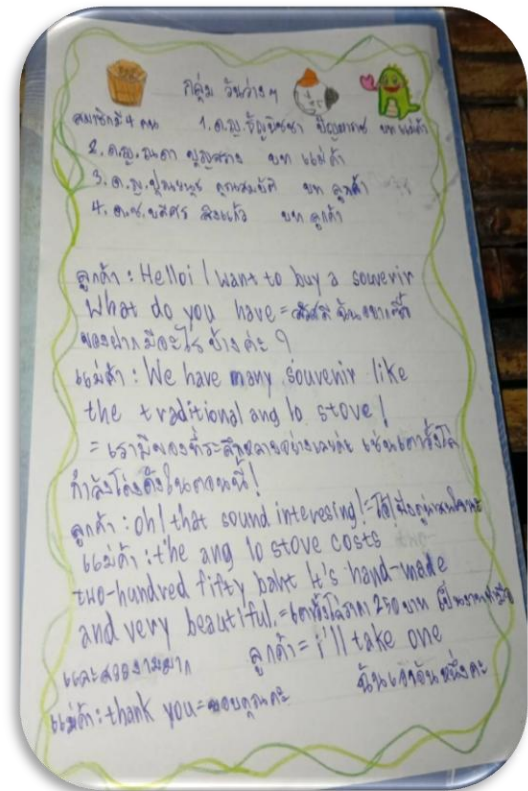 กลุ่ม วันว่างๆ
สมาชิกมี 4 คน 1. ด.ญ. ปัญญาภรณ์ บท แม่ค้า
2. ด.ญ. บท แม่ค้า
3. ด.ญ. คุณสมบัติ บท ลูกค้า
4. ด.ช. สิงแก้ว บท ลูกค้า
ลูกค้า : Helloi I want to buy a souvenir
What do you have = สวัสดี ฉันอยากซื้อ
ของฝาก มีอะไร บ้างค่ะ ?
แม่ค้า : We have many souvenir like
the traditional ang lo stove!
= เรามีของที่ระลึกหลายอย่างเลยค่ะ เช่นเตาอั้งโล่
กำลังโด่งดังในตอนนี้!
ลูกค้า : oh! that sound interesing! = โอ้!
แม่ค้า : the ang lo stove costs
two-hundred fifty baht It's hand-made
and very beautiful. = เตาอั้งโล่ราคา 250 บาท เป็นงานทำมือ
และสวยงามมาก ลูกค้า = i'll take one
ฉันเอาอันหนึ่งคะ
แม่ค้า : thank you = ขอบคุณคะ